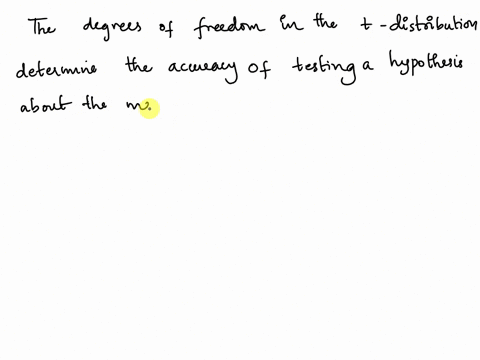 The degrees of freedom in the t-distribution
determine the accuracy of testing a hypothesis
about the